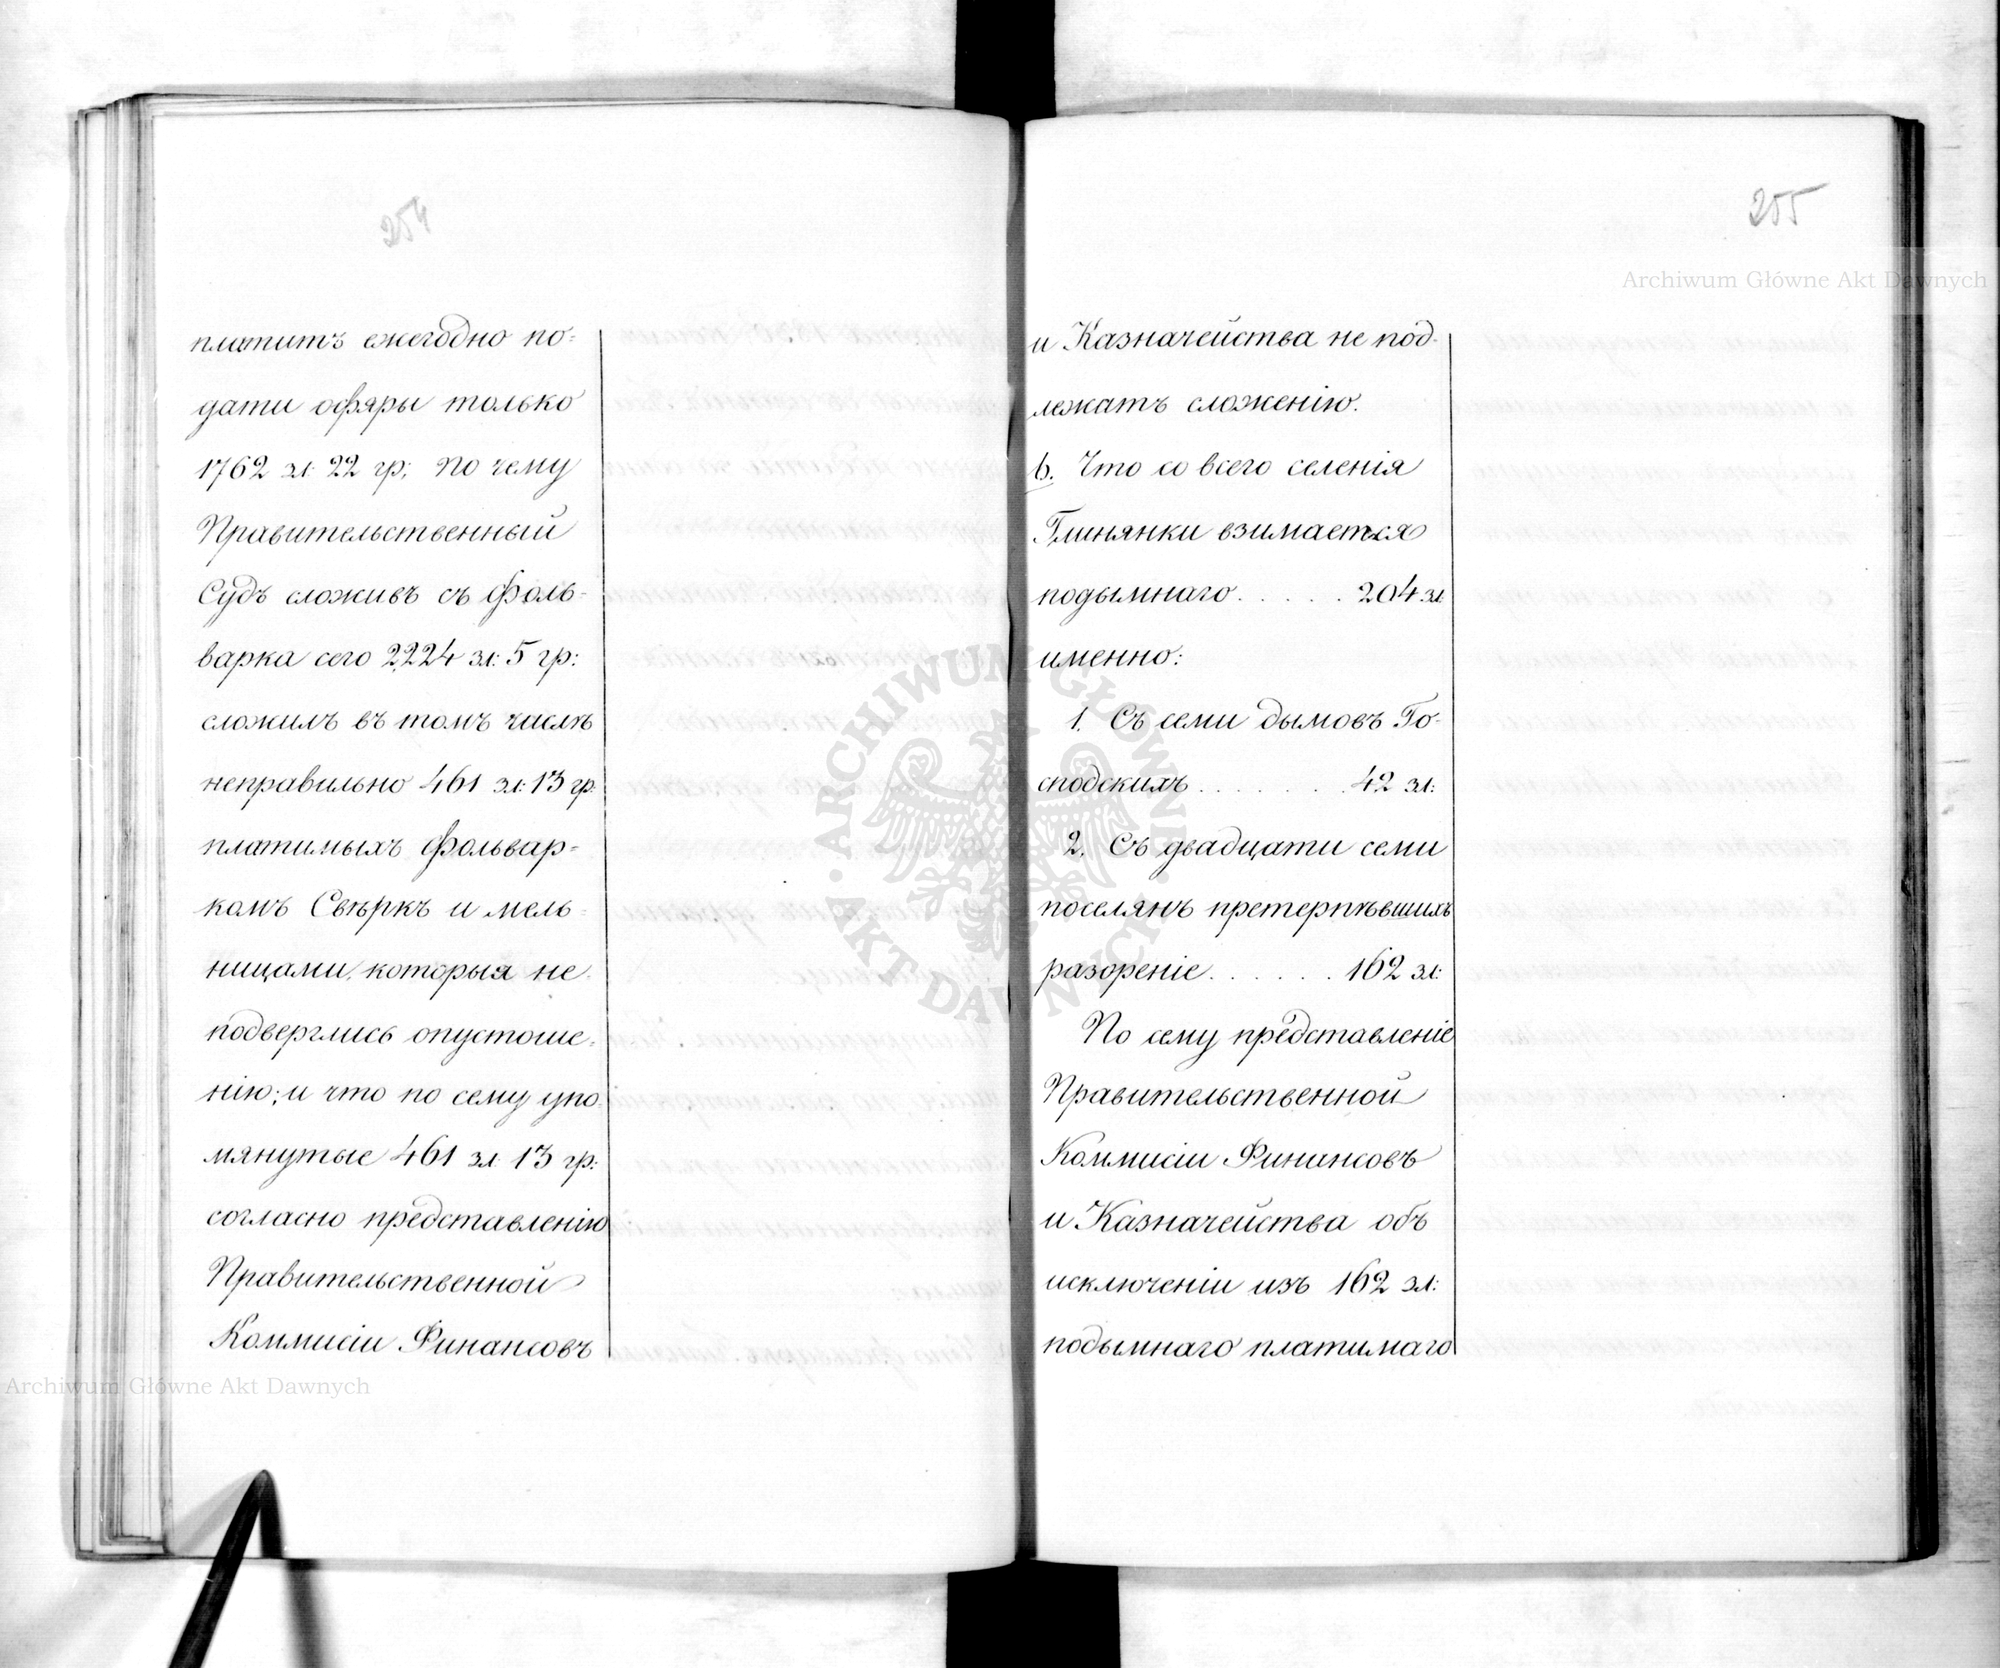 254
платитъ ежегодно по-
дати офяры только
1762 зл: 22 гр; По чему
Правительственный
Судъ сложивъ съ фоль-
варка сего 2224 зл: 5 гр:
сложилъ въ томъ числѣ
неправильно 461 зл: 13 гр.
платимыхъ фольвар-
комъ Свѣркъ и мель-
ницами, которыя не
подверглись опустоше-
нію; и что по сему упо
мянутые 461 зл: 13 гр:
согласно представленію
Правительственной
Коммисіи Финансовъ
255
и Казначейства не под-
лежатъ сложенію.
b. Что со всего селенія
Глинянки взимается
подымнаго . . . . . 204 зл
именно:
1. Съ семи дымовъ Го-
сподскихъ . . . . . . . 42 зл:
2. Съ двадцати семи
поселянъ претерпѣвшихъ
разореніе . . . . . . 162 зл:
По сему представленіе
Правительственной
Коммисіи Финансовъ
и Казначейства объ
исключеніи изъ 162 зл:
подымнаго платимаго
Archiwum Główne Akt Dawnych
Archiwum Główne Akt Dawnych
ARCHIWUM GŁÓWNE · AKT DAWNYCH ·